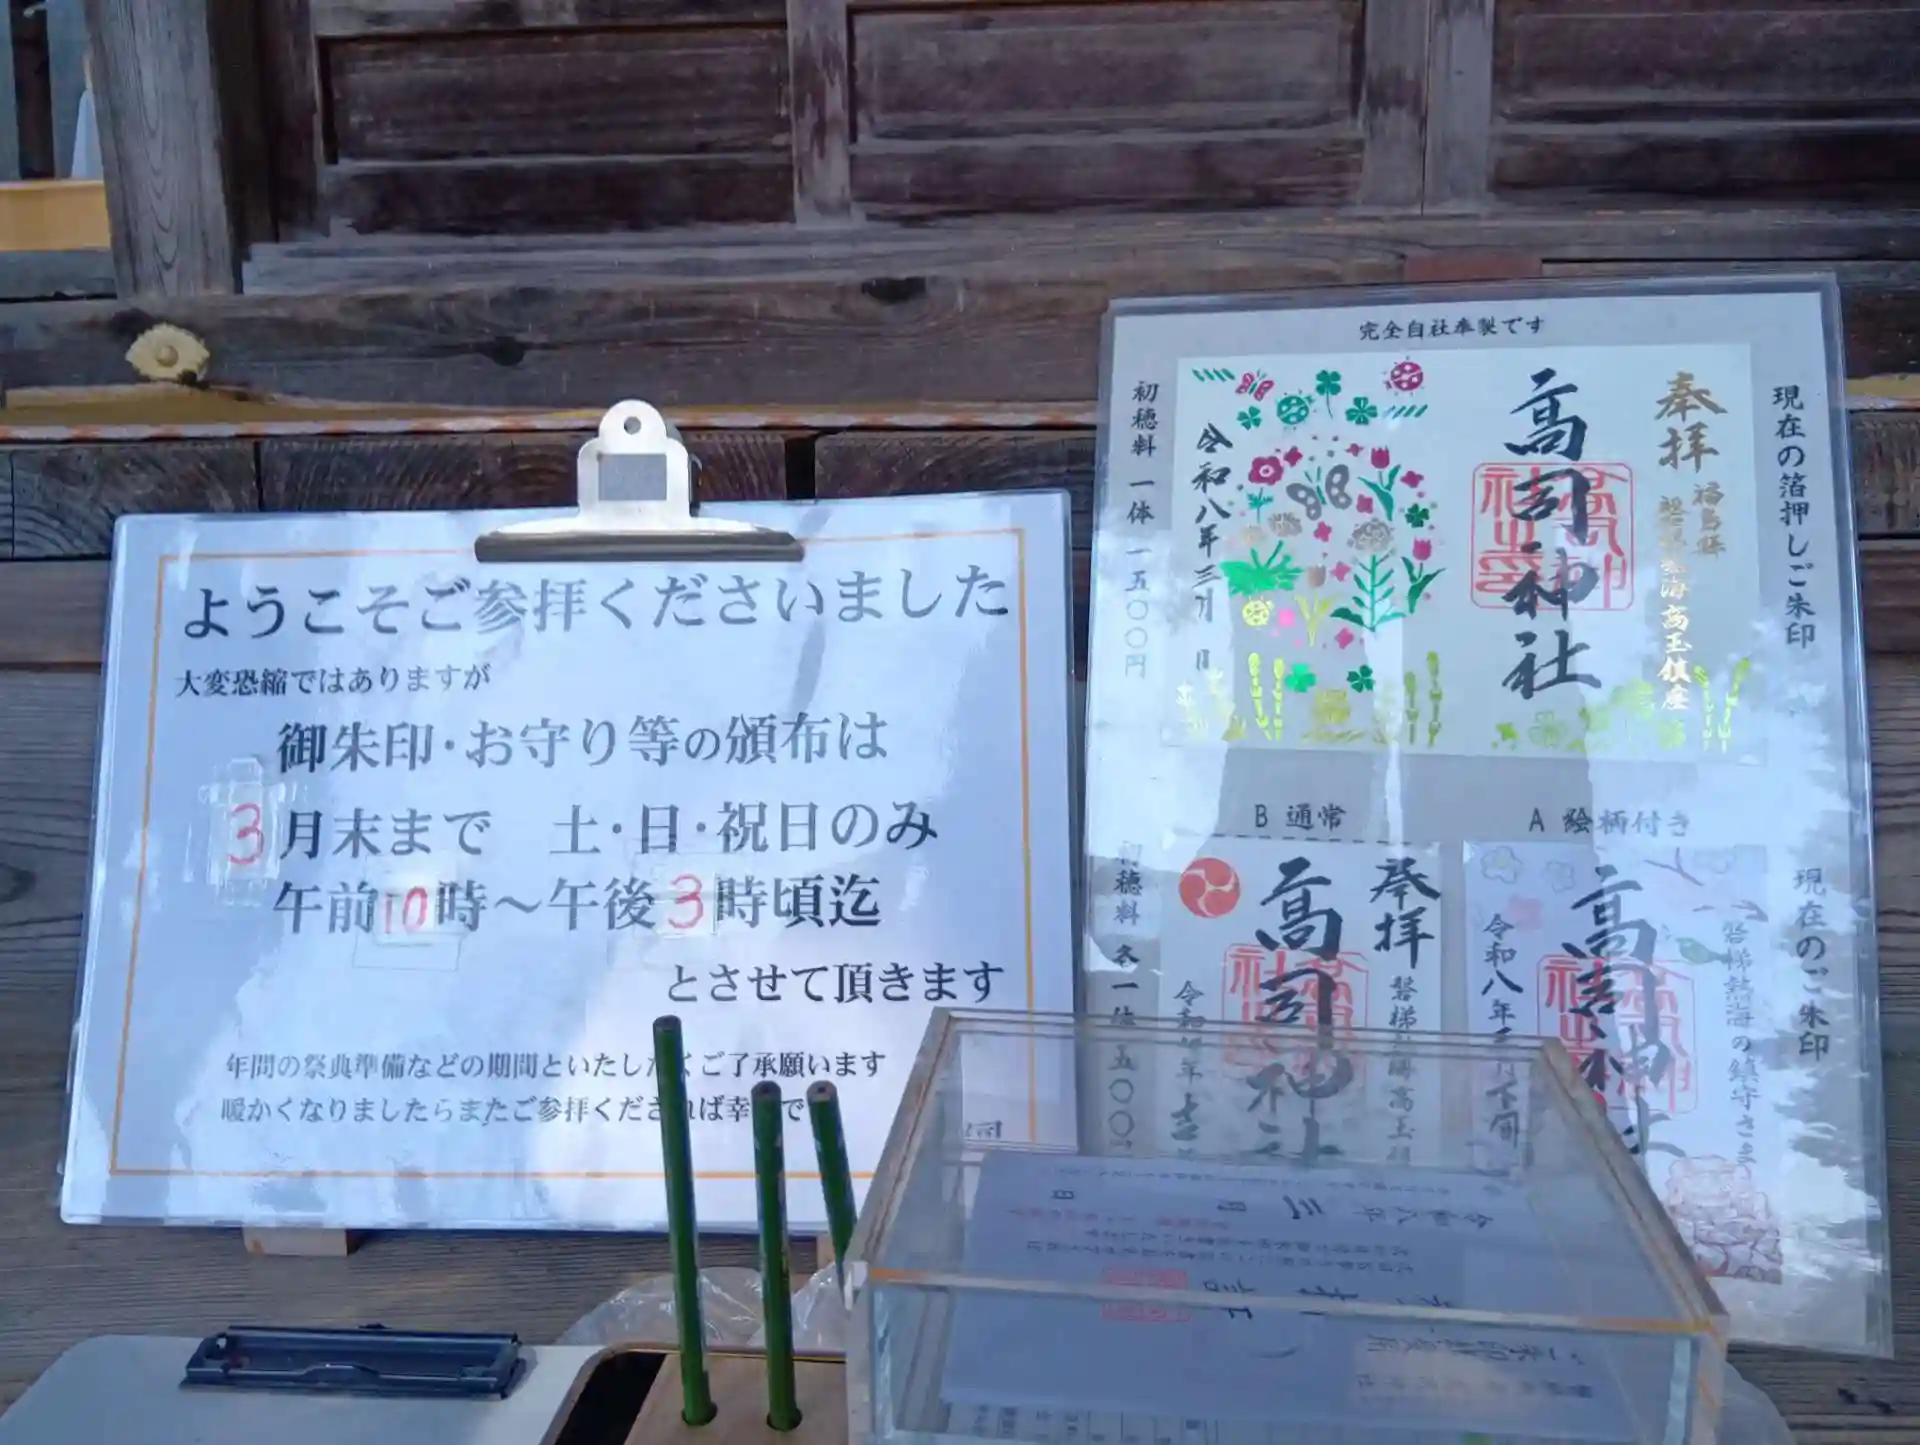 ようこそご参拝くださいました
大変恐縮ではありますが
御朱印・お守り等の頒布は
3月末まで 土・日・祝日のみ
午前10時〜午後3時頃迄
とさせて頂きます
年間の祭典準備などの期間といたしたくご了承願います
暖かくなりましたらまたご参拝くだされば幸
完全自社奉製です
現在の箔押しご朱印
奉拝
福島縣
磐梯熱海高玉鎮座
高司神社
令和八年三月 日
初穂料 一体 一五〇〇円
現在のご朱印
A 絵柄付き
磐梯熱海の鎮守さま
高司神社
令和八年三月下旬
B 通常
奉拝
磐梯熱海高玉
高司神社
令和
初穂料 各一体 五〇〇円
令和八年 三月 日